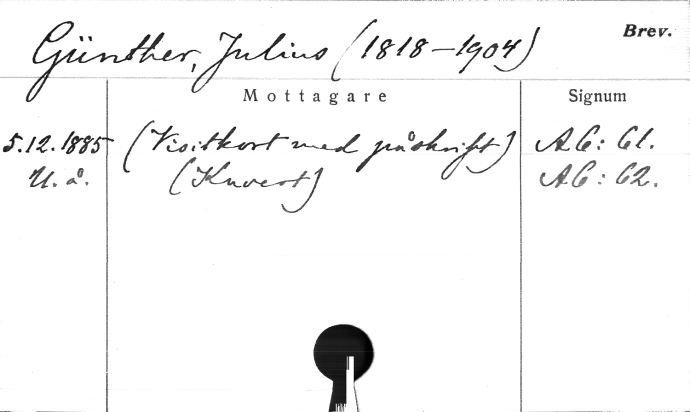 Günther, Julius (1818-1904)
Brev.
Mottagare Signum
5.12.1885 (Visitkort med påskrift) A6: 61.
U.å. (Kuvert) A6: 62.